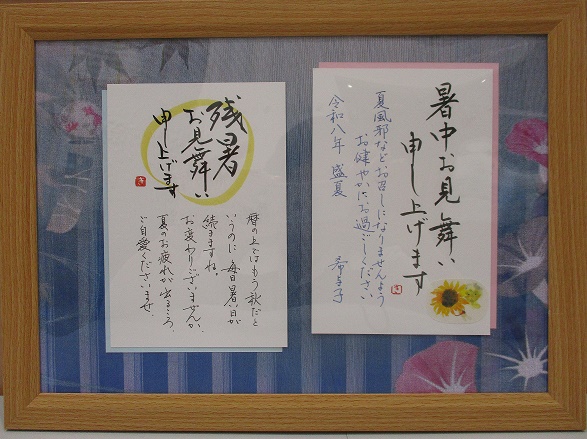 暑中お見舞い
申し上げます
夏風邪などお召しになりませんよう
お健やかにお過ごしください
令和八年 盛夏
希与子
残暑
お見舞い
申し上げます
暦の上ではもう秋だと
いうのに 毎日暑い日が
続きますね。
お変わりございませんか。
夏のお疲れが出るころ、
ご自愛くださいませ。